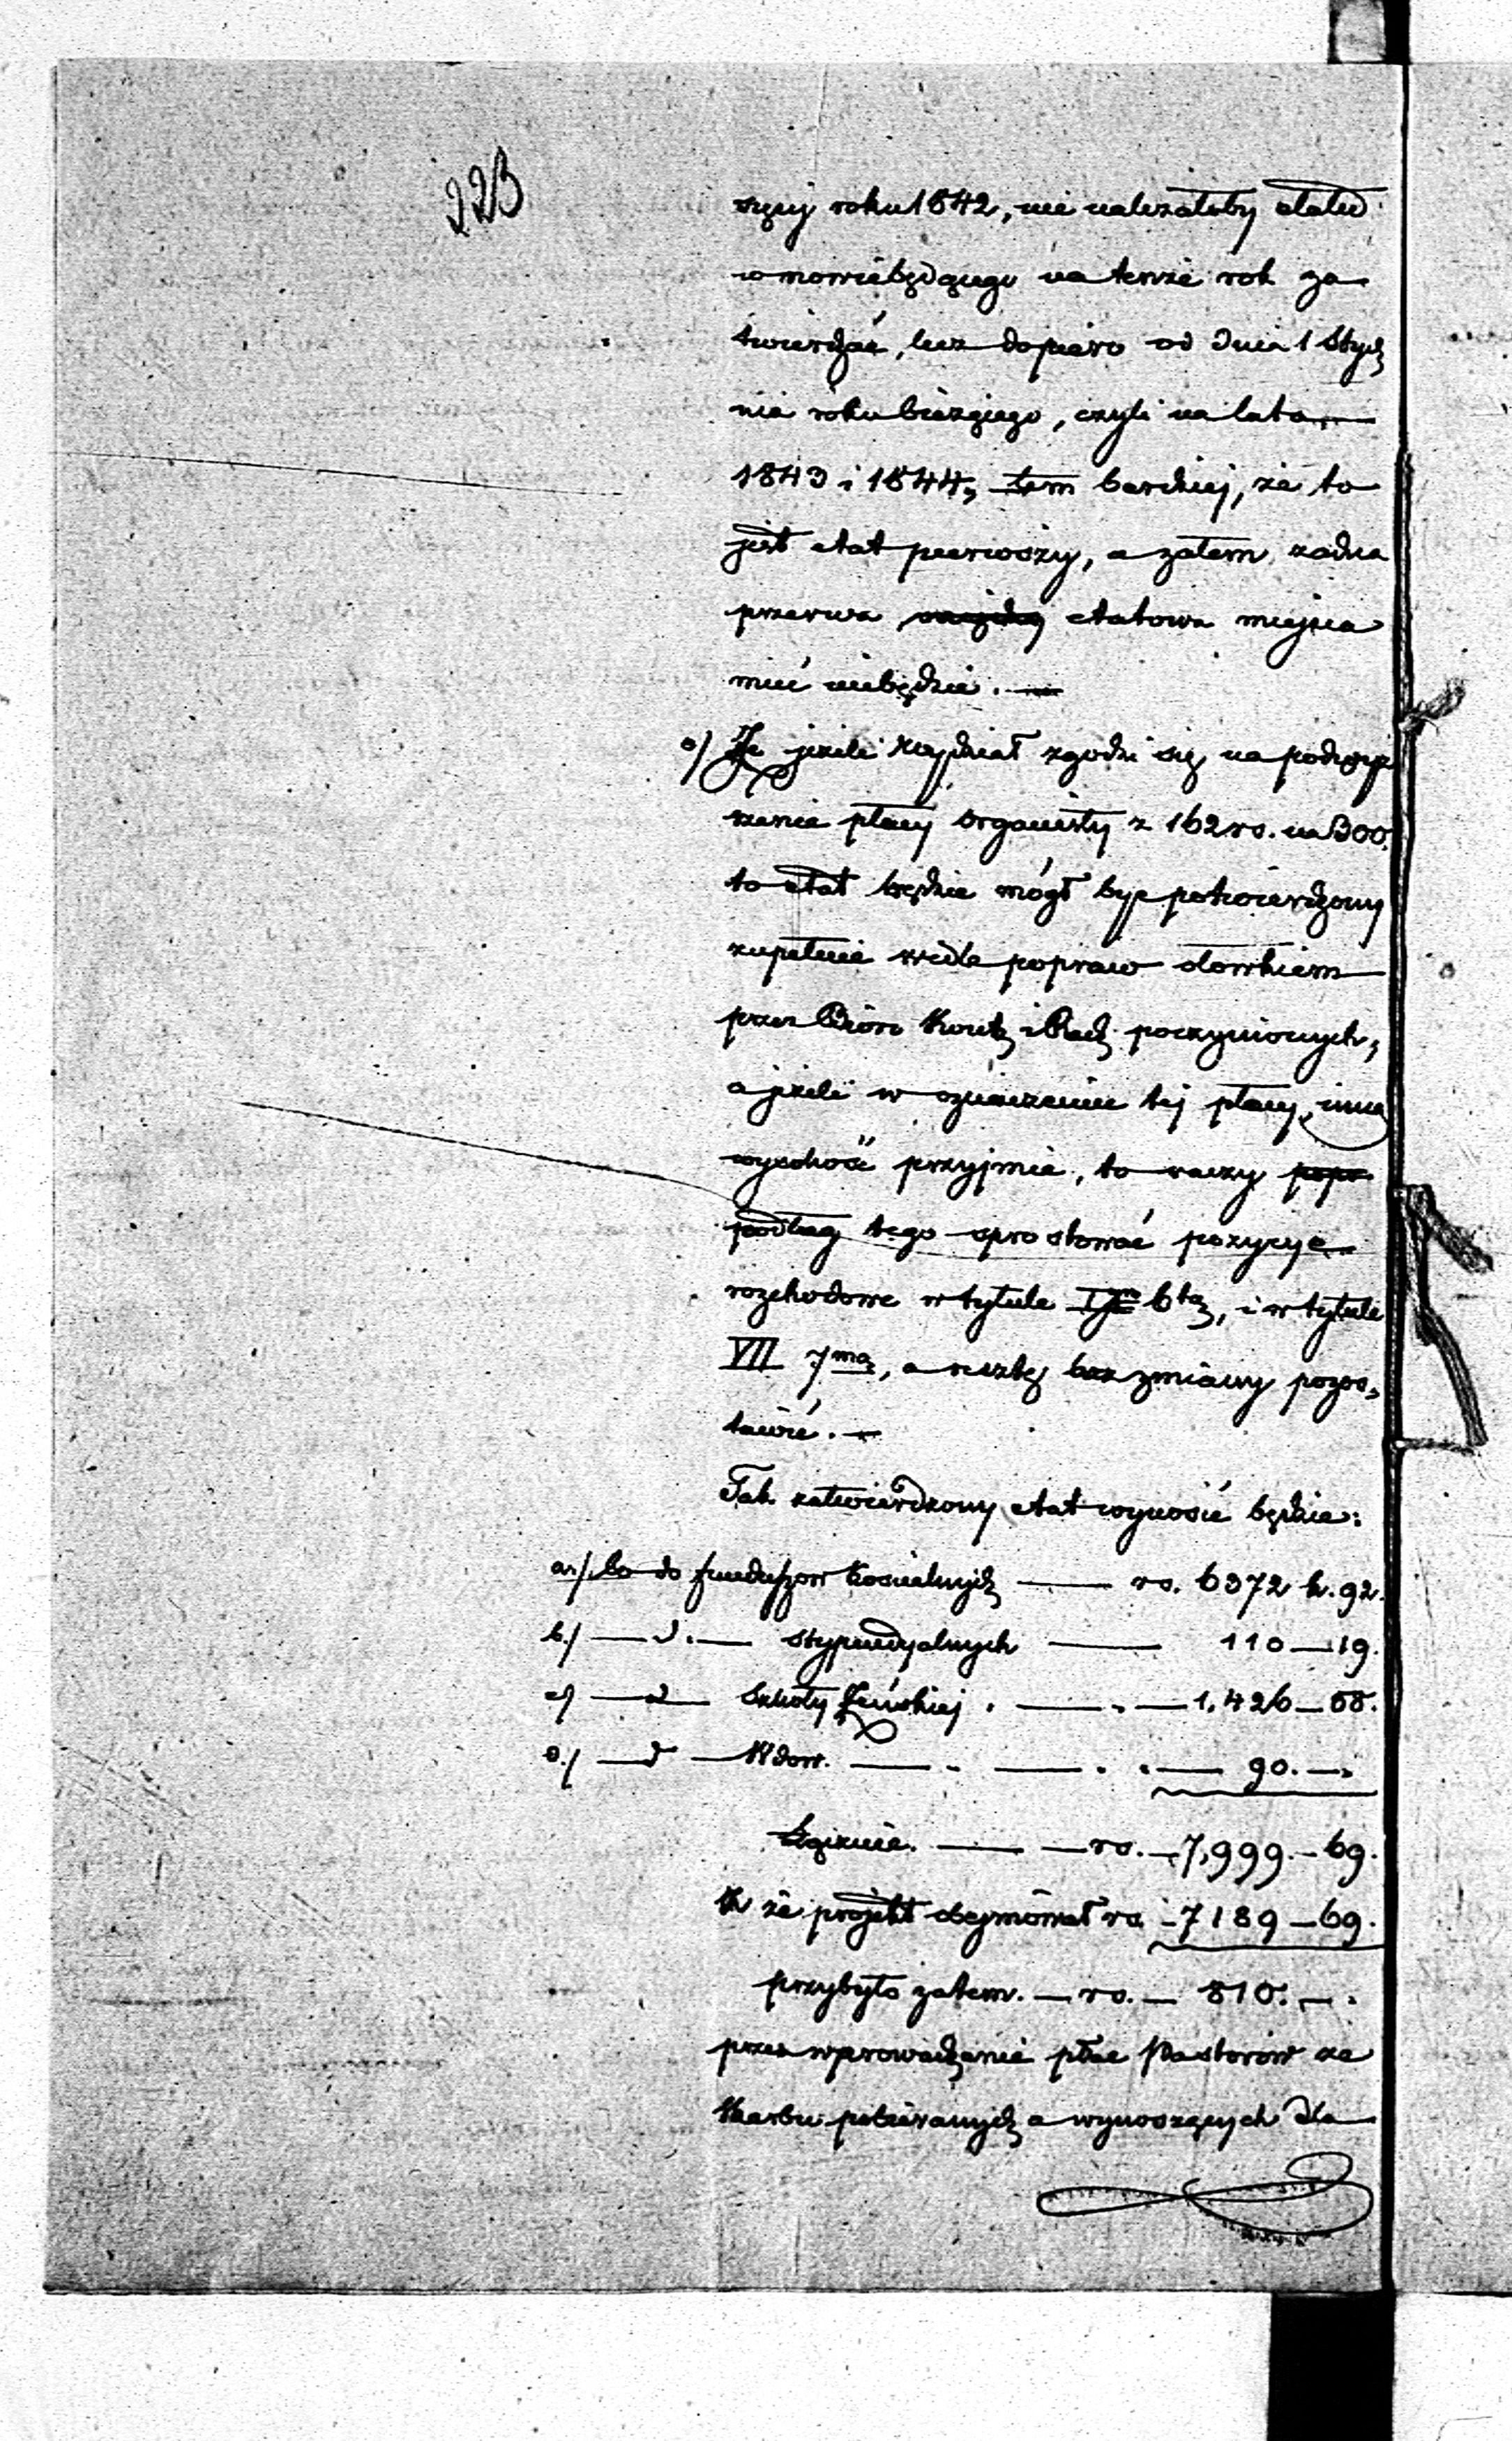 223
szej roku 1842, nie należałoby etatu
w mowie będącego na tenże rok za-
twierdzać, lecz dopiero od dnia 1 Stycz
nia roku bieżącego, czyli na lata
1843 i 1844, tem bardziej, że to
jest etat pierwszy, a zatem żadna
przerwa etatowa miejsca
mieć niebędzie. —
Że jeżeli Wydział zgodzi się na podwyż
szenie płacy organisty z 162 rs. na 300.
to etat będzie mógł być potwierdzony
zupełnie wedle popraw ołowkiem
przez Bióro Kontr. i Rach. poczynionych,
a jeżeli w oznaczeniu tej płacy inną
wysokość przyjmie, to raczy popr
podług tego sprostować pozycye
rozchodowe w tytule 6tą, i w tytule
VII 7mą, a resztę bez zmiany pozos,
tawić. —
Tak zatwierdzony etat wynosić będzie:
a./ Co do funduszow Kościelnych — rs. 6372 k. 92.
b./ — d. — stypendyalnych — 110 — 19.
c/ — d — Szkoły Żeńskiej . — . — 1,426 — 58.
d./ — d — Wdow. — . — . . — 90. — .
Łącznie. — — rs. — 7,999. — 69.
że projekt obejmował rs. — 7189 — 69.
przybyło zatem. — rs. — 810. — .
przez wprowadzenie płac Pastorów ze
Skarbu pobieranych a wynoszących dla